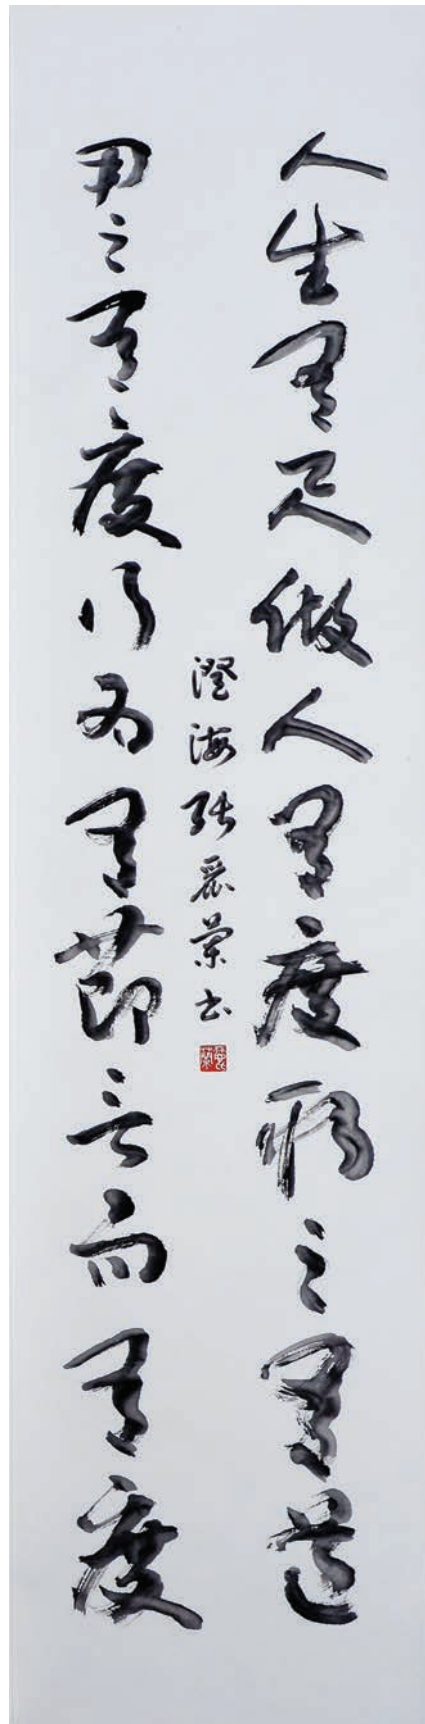 人生有尺做人有度取之有道
用之有度行為有節言而有度
澄海張麗蘭書